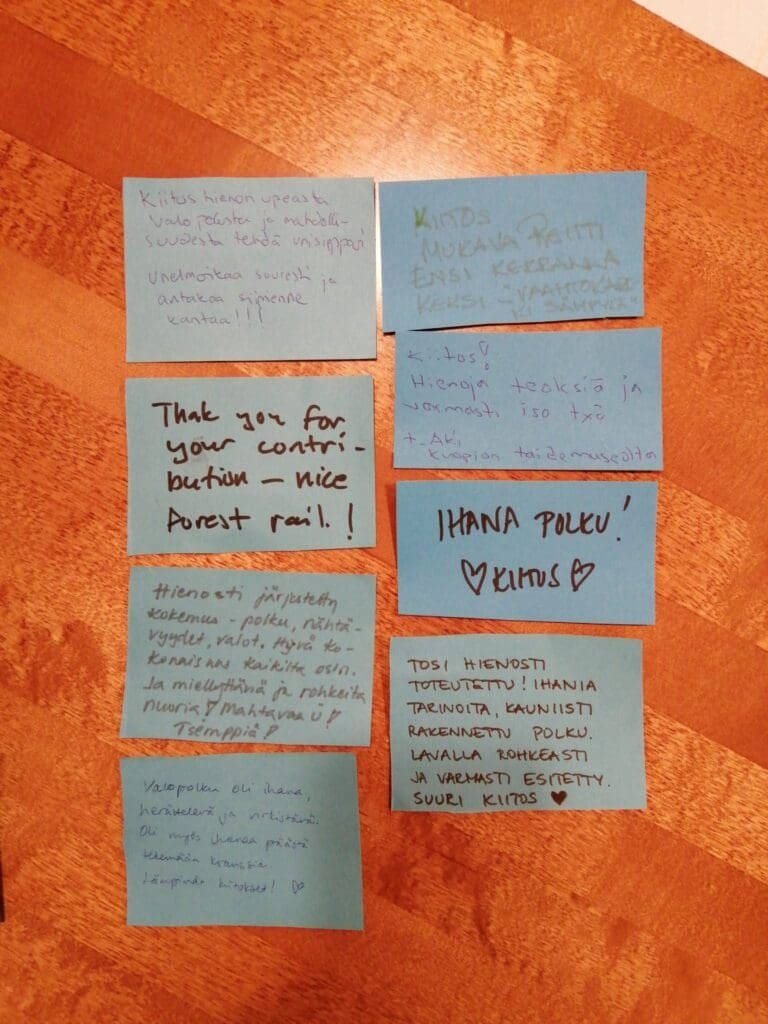 Kiitus hienon upeasta
valopolusta ja mahdolli-
suudesta tehdä unisieppari
Unelmoikaa suuresti ja
antakaa siipienne
kantaa!!!
Thak you for
your contri-
bution – nice
forest rail.!
Hienosti järjestetty
kokemus - polku, nähtä-
vyydet, valot. Hyvä ko-
konaisuus kaikilta osin.
Ja miellyttäviä ja rohkeita
nuoria! Mahtavaa Ü!
Tsemppiä!
Valopolku oli ihana,
herättelevä ja virkistävä.
Oli myös ihanaa päästä
tekemään kranssia.
Lämpimät kiitokset! ♡
KIITOS
MUKAVA REITTI
ENSI KERRALLA
KEKSI -
Kiitos!
Hienoja teoksiä ja
varmasti iso txö
t. Aki
Kuopion taidemuseolta
IHANA POLKU!
♡KIITUS♡
TOSI HIENOSTI
TOTEUTETTU! IHANIA
TARINOITA, KAUNIISTI
RAKENNETTU POLKU.
LAVALLA ROHKEASTI
JA VARMASTI ESITETTY.
SUURI KIITOS ♥